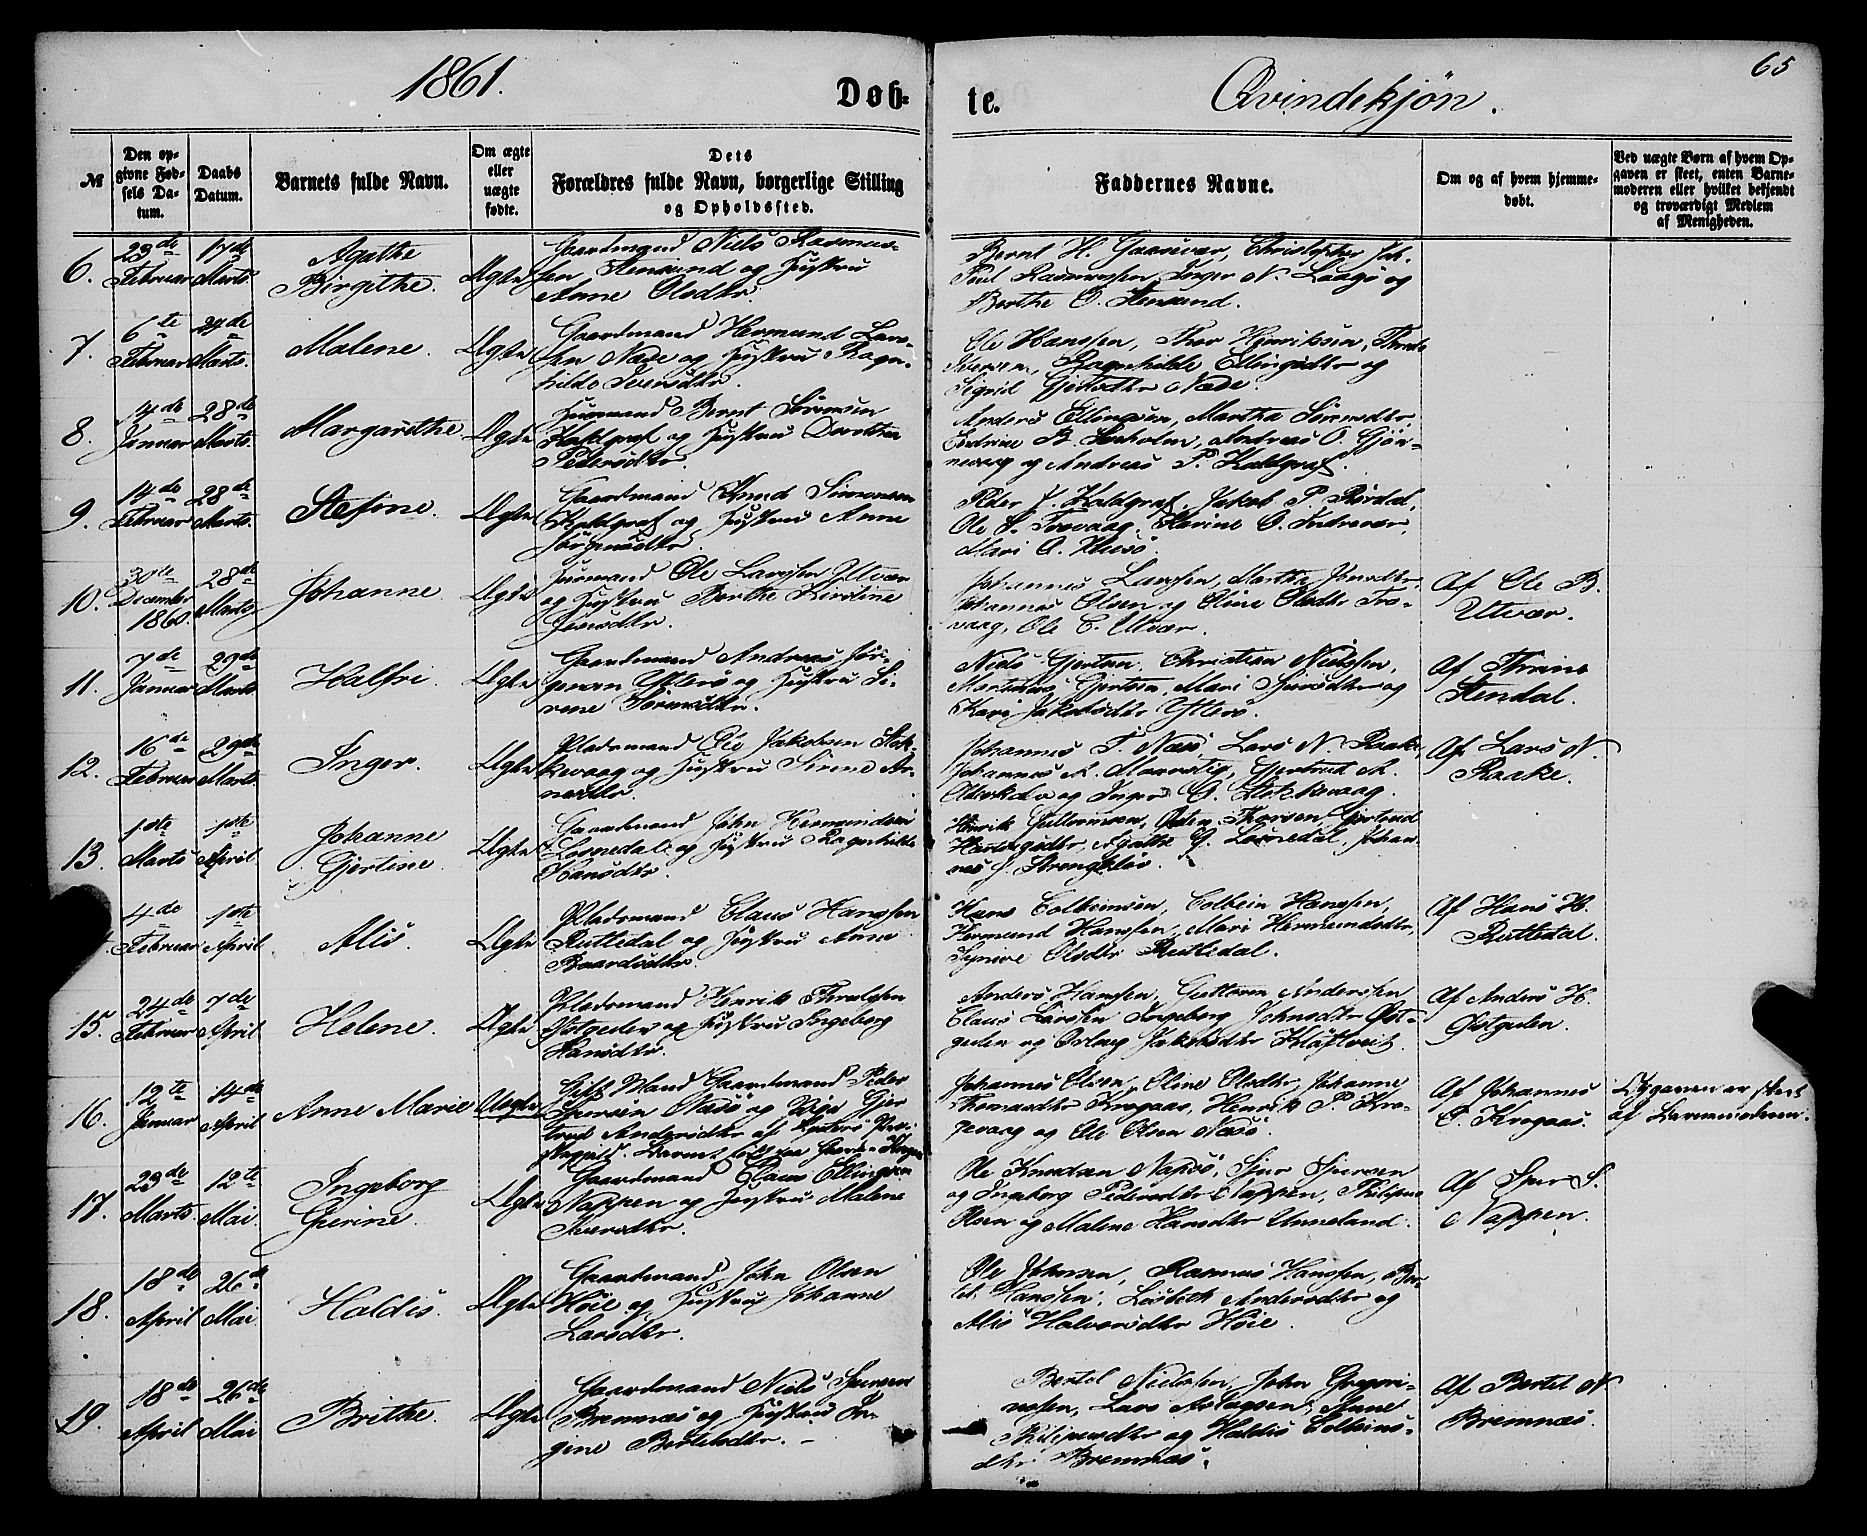 1861.
Døb-
te.
Qvindekjøn.
65
№
Den op-
givne Fød-
sels Da-
tum.
Daabs
Datum.
Barnets fulde Navn.
Om ægte
eller
uægte
fødte.
Dets
Forældres fulde Navn, borgerlige Stilling
og Opholdssted.
Faddernes Navne.
Om og af hvem hjemme-
døbt.
Ved uægte Børn af hvem Op-
gaven er skeet, enten Barne-
moderen eller hvilket bekjendt
og troværdigt Medlem
af Menigheden.
6.
23de
Februar
17de
Marts.
Agathe
Birgithe.
Ægte
Gaardmand Niels Rasmus-
sen Stensund og Hustru
Anne Olsdtr.
Bernt H. Gaasvær, Christopher Joh.
Poul Rasmussen, Inger N. Laagø og
Berthe O. Stensund.
7.
6te
Februar
24de
Marts.
Malene.
Ægte
Gaardmand Hermund Lars-
sen Næde og Hustru Ragn-
hilde Iversdtr.
Ole Hanssen, Thor Henriksen,
Iversen, Ragnhilde Ellingsdtr og
Sigrid Gjertsdtr Næde.
8.
14de
Januar
28de
Marts.
Margarethe
Ægte
Huusmand Bernt Sørensen
Kaldgraf og Hustru Dorothea
Pedersdtr.
Anders Ellingsen, Martha Simonsdtr,
B. Lesholm, Andreas O. Gjøn-
nevaag og Andreas P. Kaldgraf.
9.
14de
Februar
28de
Marts.
Stefine.
Ægte
Gaardmand Knud Simonsen
Kaldgraf og Hustru Anne
Jørgensdtr.
Peder J. Kaldgraf, Jakob P. Rørdal,
Ole S. Trovaag, Karine O. Indrevær,
Mari A. Husø.
10.
30te
December
1860.
28de
Marts.
Johanne
Ægte
Huusmand Ole Larssen Utvær
og Hustru Berthe Kirstine
Jensdtr.
Johannes Larssen, Marthe Jensdtr,
Johannes Olsen og Oline Olsdtr Tro-
vaag, Ole B. Utvær.
Af Ole B.
Utvær.
11.
7de
Januar
29de
Marts
Halfri.
Ægte
Gaardmand Andreas Jør-
gensen Ytterø og Hustru Si-
rene Sørensdtr.
Niels Gjertsen, Christian Nielssen,
Martinus Gjertsen, Mari Sjursdtr og
Kari Jakobsdtr Ytterø.
Af Thrine
Stendal.
12.
16de
Februar
29de
Marts.
Inger.
Ægte
Pladsmand Ole Jakobsen Stok-
kevaag og Hustru Sinne Ar-
nesdtr.
Johannes T. Næsø, Lars N. Raake,
Johannes A. Maarstig, Gjertrud A.
og Inger O. Stokkevaag.
Af Lars N.
Raake.
13.
1ste
Marts
1ste
April
Johanne
Gjertine.
Ægte
Gaardmand John Hermundsen
Losnedal og Hustru Ragnhilde
Hansdtr.
Henrik Guttormsen, Osten Thorsen, Gjertrud
Hansdtr, Agathe G. Losnedal, Johan-
nes J. Strengkløv.
4de
Februar
1ste
April
Alis.
Ægte
Pladsmand Claus Hanssen
Rutledal og Hustru Anne
Baardsdtr.
Hans Colbeinsen, Colbein Hanssen,
Hermund Hanssen, Mari Hermundsdtr,
Synive Olsdtr Rutledal.
Af Hans H.
Rutledal.
15.
24de
Februar
7de
April
Helene.
Ægte
Pladsmand Henrik Theralssen
Østgulen og Hustru Ingeborg
Hansdtr.
Anders Hanssen, Guttorm Anderssen
Claus Larssen Ingeborg Johnsdtr Øst-
gulen og Orlaug Jakobsdtr Kløftveit.
Af Anders H.
Østgulen.
16.
12te
Januar
14de
April
Anne Marie
Uægte
Gift Mand Gaardmand Peder
Iversen Næsø og Pige Gjer-
trud Andersdtr af
Johannes Olsen, Oline Olsdtr, Johanne
Thomasdtr Krogaas, Henrik P. Kro-
gevaag og Ole Olsen Næsø.
Af Johannes
O. Krogaas.
Opgaven er skeet
af Barnemoderen.
17.
23de
Marts.
12te
Mai.
Ingeborg
Gurine.
Ægte
Gaardmand Claus Ellingsen
Nappen og Hustru Malene
Iversdtr.
Ole Knudsen Næsø, Sjur Sjursen
og Ingeborg Pedersdtr Nappen, Philipus
Olsen og Malene Hansdtr Unneland.
Af Sjur S.
Nappen.
18.
18de
April
26de
Mai.
Haldis.
Ægte
Gaardmand John Olsen
Høie og Hustru Johanne
Larsdtr.
Ole Johnsen, Rasmus Hanssen, Ber-
tel Hanssen, Lisbeth Andersdtr og
Alis Halvorsdtr Høie.
19.
18de
April
26de
Mai
Brithe.
Ægte
Gaardmand Niels Iversen
Bremnæs og Hustru In-
gine Bertelsdtr. -
Bertel Nielssen, John Gregori-
ussen, Lars Aslagsen, Anne
Philipusdtr og Haldis Colbeins-
dtr Bremnæs.
Af Bertel N
Bremnæs.